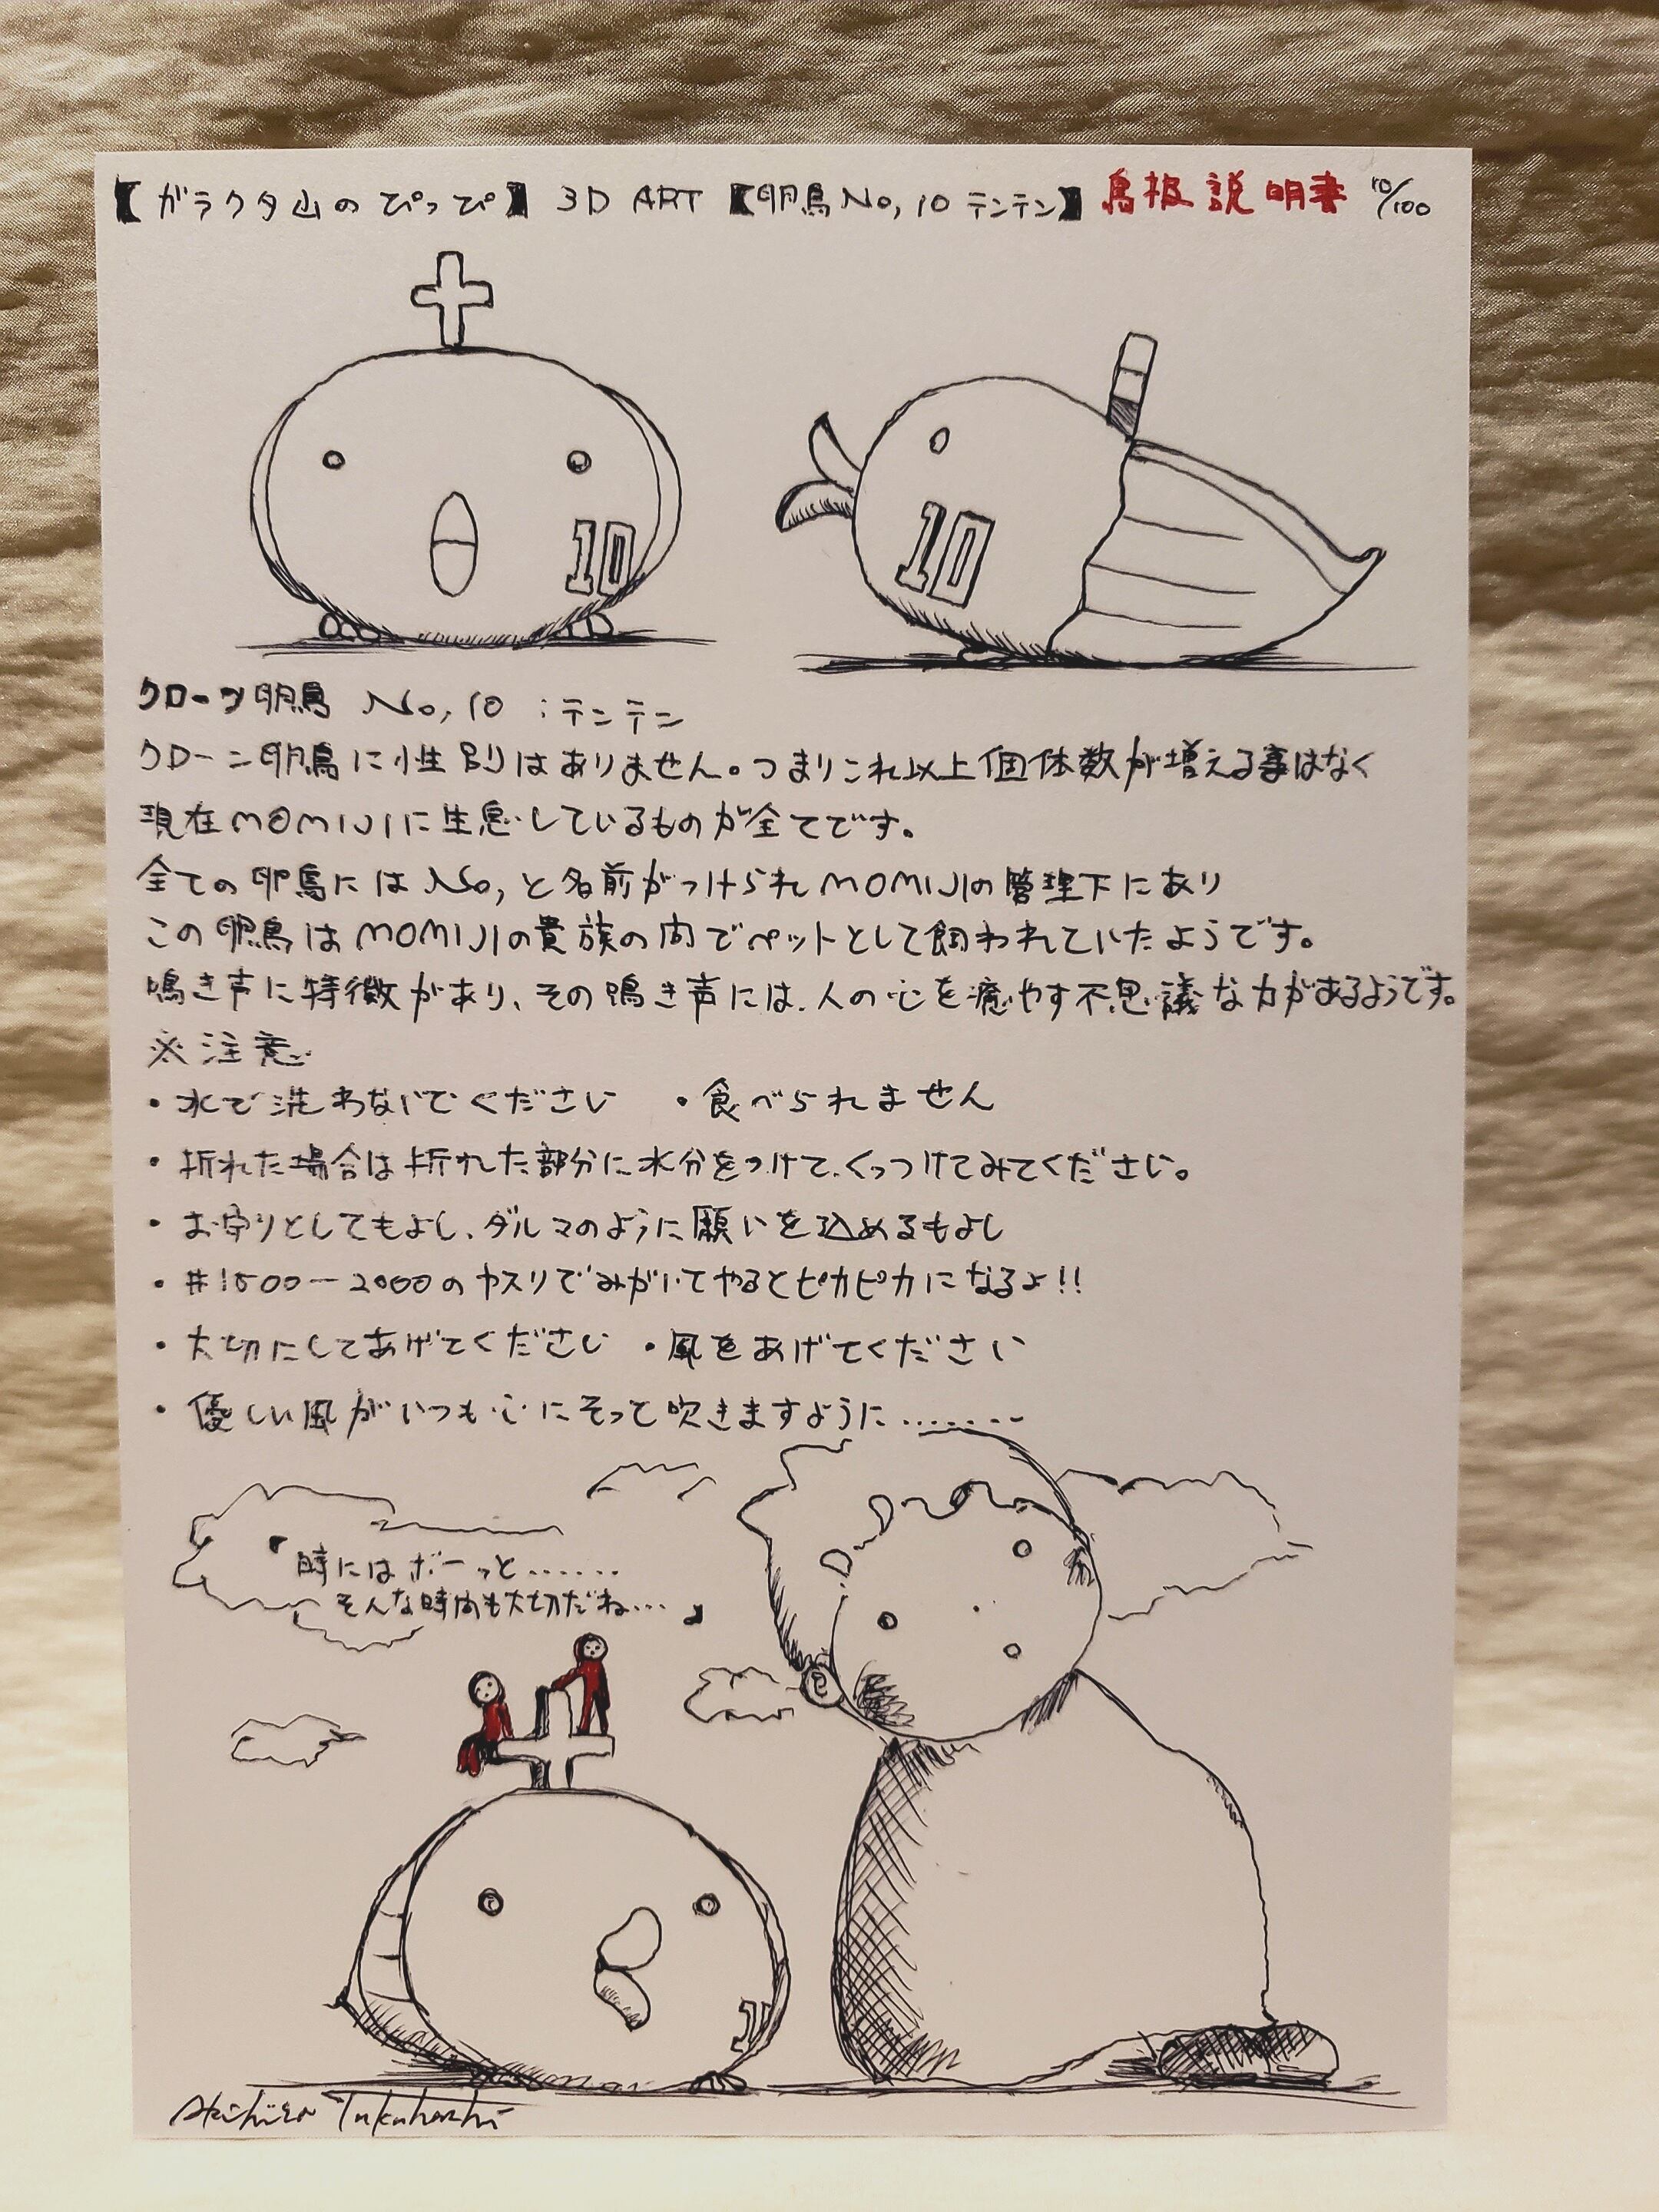 【ガラクタ山のぴっぴ】 3D ART 【卵鳥No,10 テンテン】 鳥扱説明書 10/100
10
10
クローン卵鳥 No,10 :テンテン
クローン卵鳥に性別はありません。つまりこれ以上個体数が増える事はなく
現在MOMIJIに生息しているものが全てです。
全ての卵鳥にはNo,と名前がつけられMOMIJIの管理下にあり
この卵鳥はMOMIJIの貴族の間でペットとして飼われていたようです。
鳴き声に特徴があり、その鳴き声には、人の心を癒やす不思議な力があるようです。
※注意
・水で洗わないでください ・食べられません
・折れた場合は折れた部分に水分をつけて、くっつけてみてください。
・お守りとしてもよし、ダルマのように願いを込めるもよし
・#1500-2000のヤスリでみがいてやるとピカピカになるよ!!
・大切にしてあげてください ・風をあげてください
・優しい風がいつも心にそって吹きますように.......
「時にはボーっと......
そんな時間も大切だね...」
1
Akihiro Takahashi